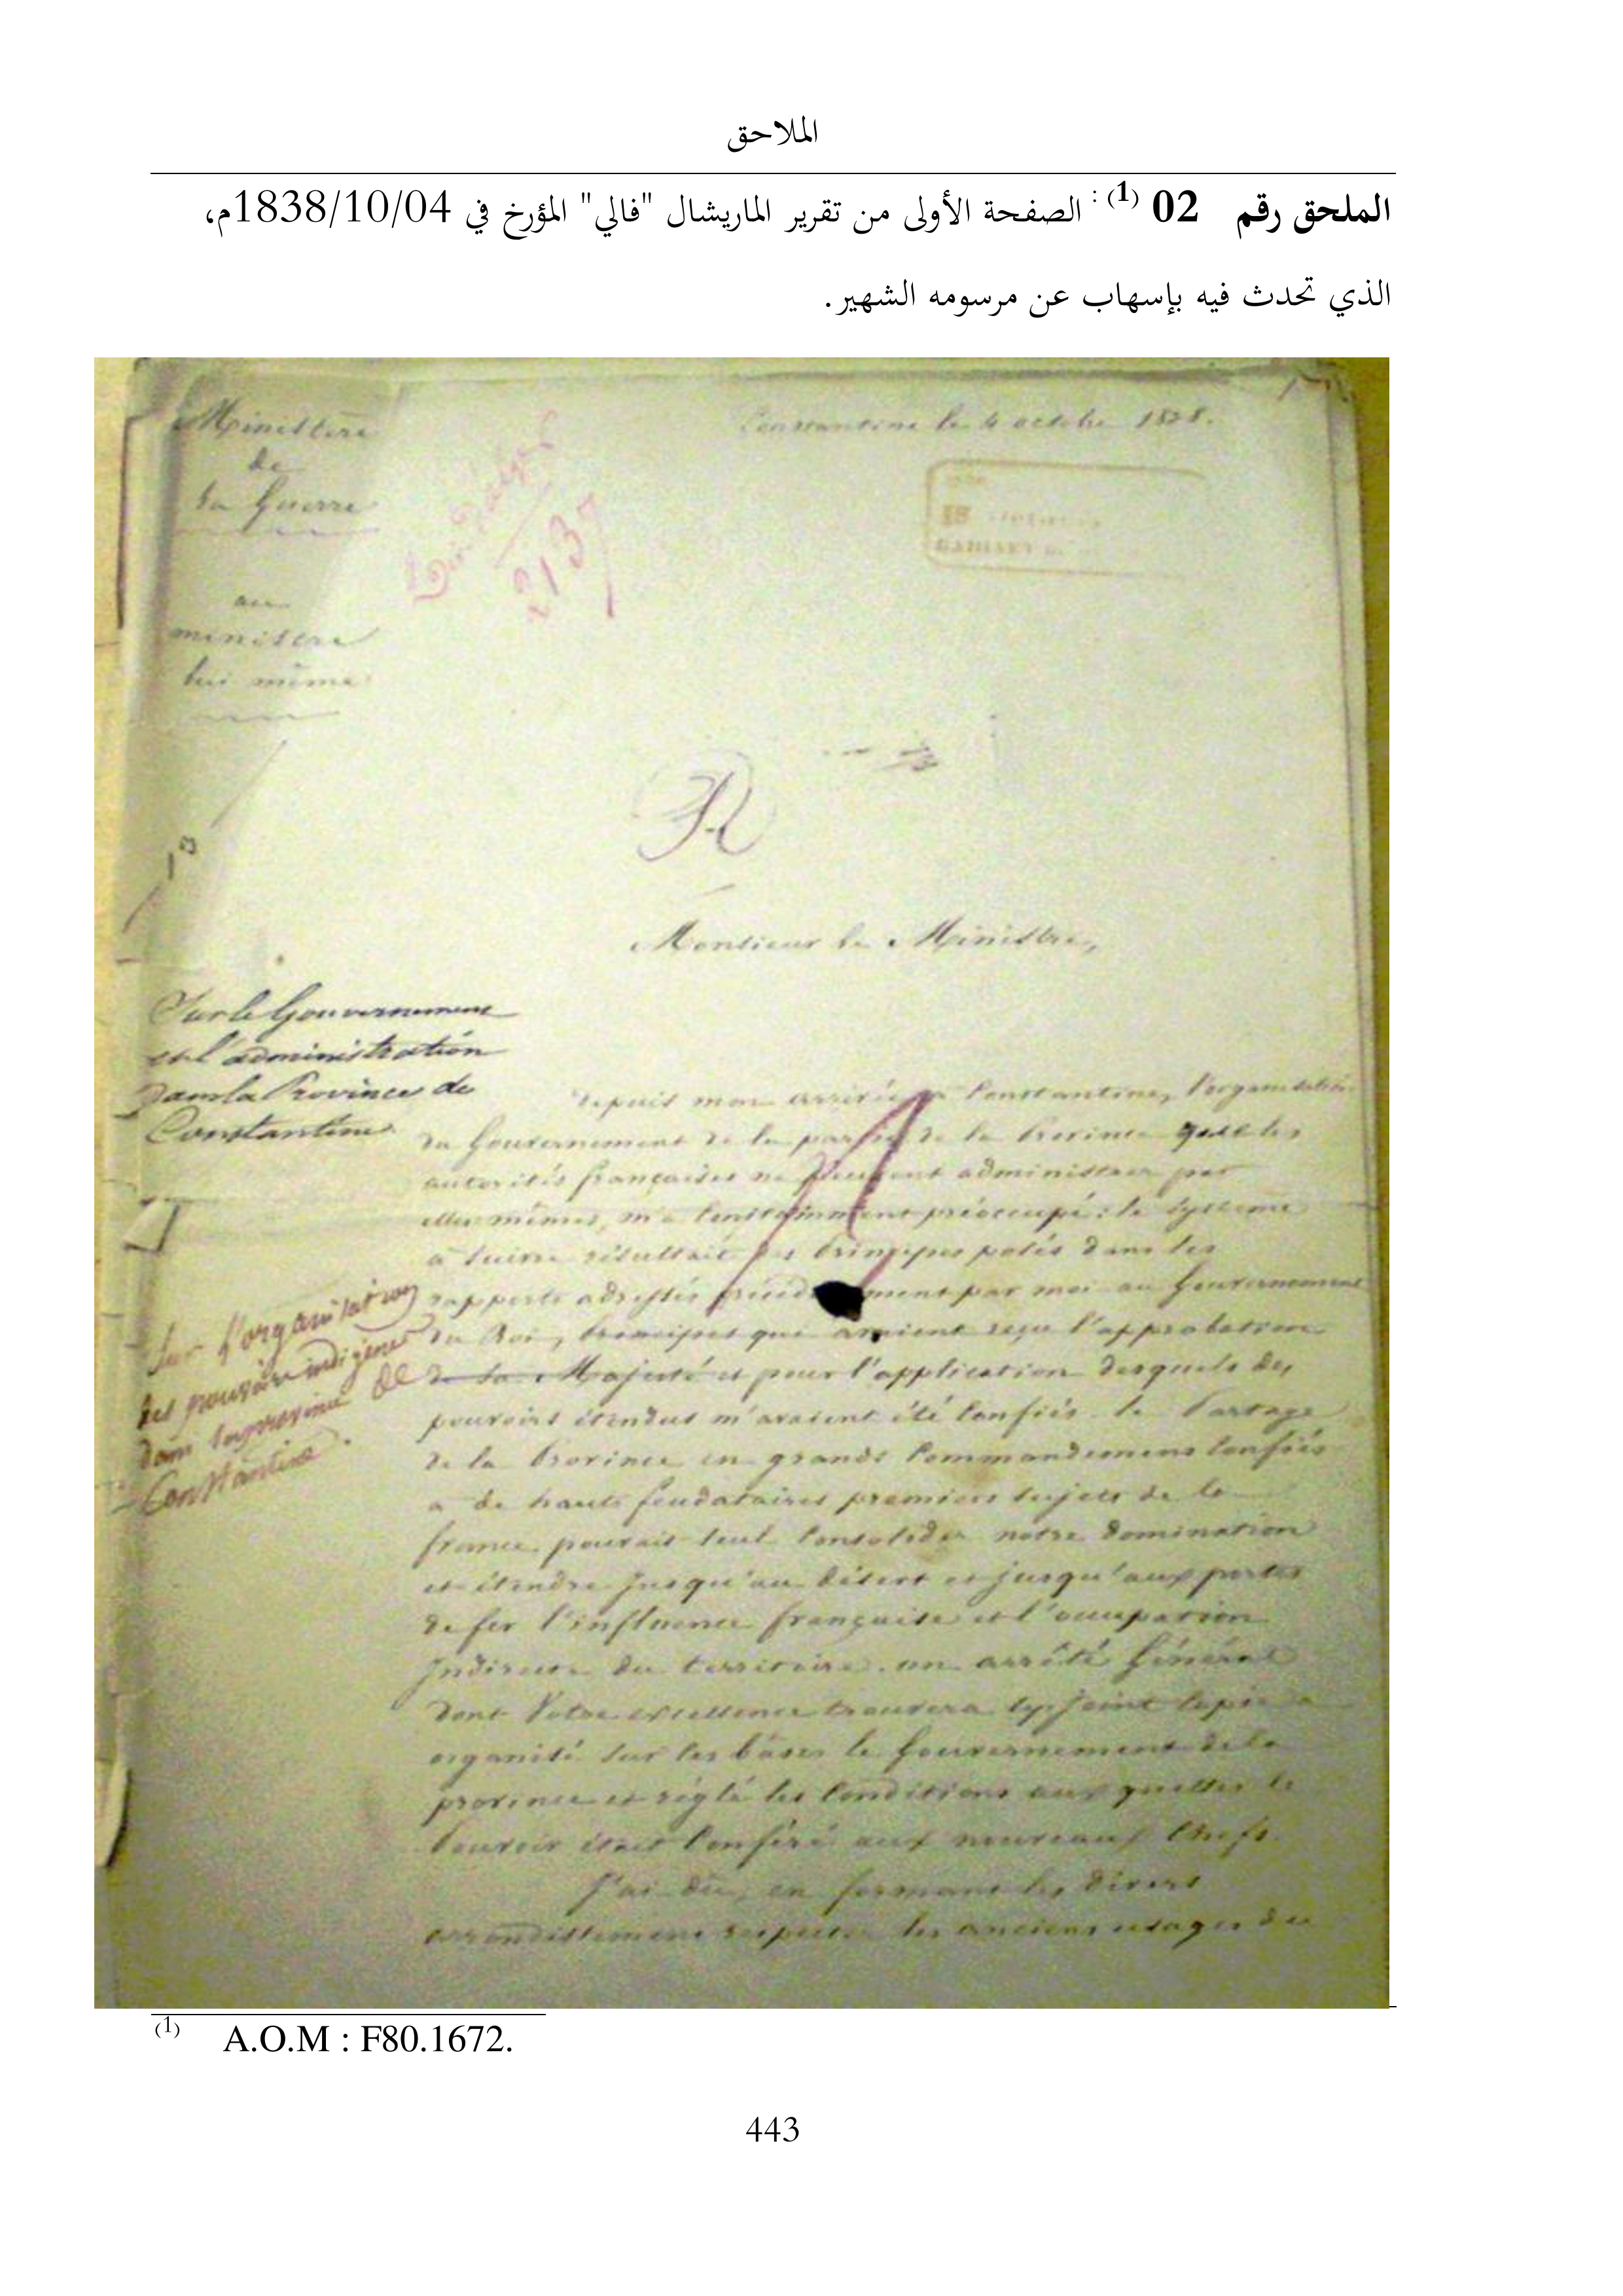 الملاحق
الملحق رقم 02 (1) : الصفحة الأولى من تقرير الماريشال "فالي" المؤرخ في 1838/10/04م،
الذي تحدث فيه بإسهاب عن مرسومه الشهير.
Ministère
de
la Guerre
Constantine le 4 octobre 1838.
2137
au
ministre
lui même
R
1º
Monsieur le Ministre,
Sur le Gouvernement
et l'administration
dans la Province de
Constantine
Sur l'organisation
des pouvoirs indigènes
dans la province de
Constantine.
Depuis mon arrivée à Constantine, l'organisation
du Gouvernement de la partie de la Province que les
autorités françaises ne peuvent administrer par
elles mêmes, m'a constamment préoccupé : le système
à suivre résultait des principes posés dans les
rapports adressés par moi au Gouvernement
du Roi, principes qui avaient reçu l'approbation
de Sa Majesté et pour l'application desquels des
pouvoirs étendus m'avaient été confiés. le Partage
de la Province en grands Commandemens confiés
a de hauts feudataires premiers sujets de la
france pouvait seul consolider notre domination
et étendre jusqu'au désert et jusqu'aux portes
de fer l'influence française et l'occupation
Indirecte du territoire. un arrêté Général
dont Votre excellence trouvera cy joint copie a
organisé sur les bases le Gouvernement de la
province et réglé les conditions aux quelles le
Pouvoir était conféré aux nouveaux Chefs.
J'ai dû, en formant les divers
arrondissemens respecter les anciens usages du
(1) A.O.M : F80.1672.
443